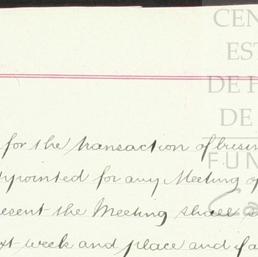 CEN
EST
DE H
DE
FUN
for the transaction of busin
ppointed for any Meeting of
resent the Meeting shall
xt week and place and fa